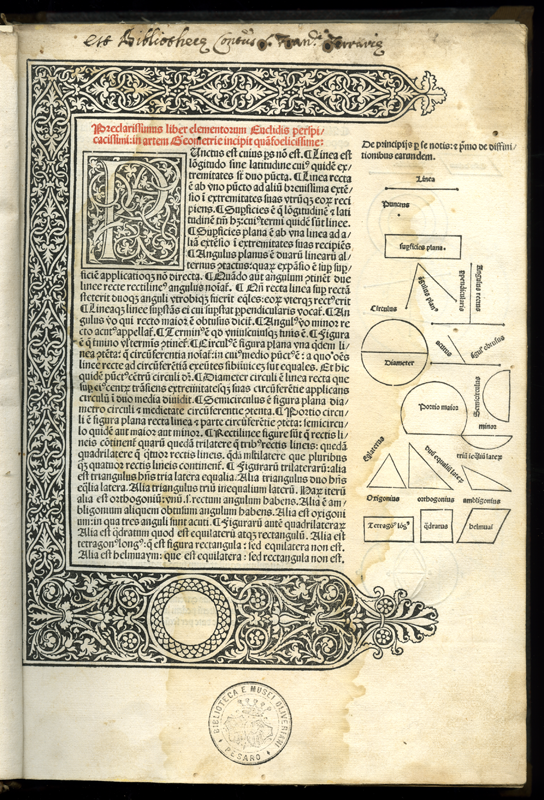 Est Bibliothecę
Preclarissimus liber elementorum Euclidis perspi/
cacissimi: in artem Geometrie incipit quãfoelicissime:
Punctus est cuius ps nõ est. ¶ Linea est
lõgitudo sine latitudine cuiꝰ quidẽ ex/
tremitates sũt duo pũcta. ¶ Linea recta
ẽ ab vno pũcto ad aliũ breuissima extẽ/
sio ĩ extremitates suas vtrũqꝫ eoꝝ reci
piens. ¶ Supficies ẽ q̃ lõgitudinẽ ⁊ lati
tudinẽ tm̃ hꝫ: cuiꝰ termi quidẽ sũt linee.
¶ Supficies plana ẽ ab vna linea ad a/
liã extẽsio ĩ extremitates suas recipiẽs
¶ Angulus planus ẽ duarũ linearũ al/
ternus ꝯtactus: quaꝝ expãsio ẽ sup sup/
ficiẽ applicatioqꝫ nõ directa. ¶ Quãdo aut angulum ꝯtinẽt due
linee recte rectilineꝰ angulus noiat̃. ¶ Qñ recta linea sup rectã
steterit duoqꝫ anguli vtrobiqꝫ fuerit eq̃les: eoꝝ vterqꝫ rectꝰ erit
¶ Lineaqꝫ linee supstãs ei cui supstat ppendicularis vocat̃. ¶ An
gulus vo qui recto maior ẽ obtusus dicit̃. ¶ Angulꝰ vo minor re
cto acutꝰ appellat̃. ¶ Terminꝰ ẽ qd vniuscuiusqꝫ finis ẽ. ¶ Figura
ẽ q̃ tmino vl termis ꝯtinet̃. ¶ Circulꝰ ẽ figura plana vna q̃dem li/
nea ꝯtẽta: q̃ circũferentia noiat̃: in cuiꝰ medio pũctꝰ ẽ: a quo oẽs
linee recte ad circũferẽtiã exeũtes sibiinuicẽ sut equales. Et hic
quidẽ pũctꝰ cẽtrũ circuli dr̃. ¶ Diameter circuli ẽ linea recta que
sup eiꝰ centꝝ trãsiens extremitatesqꝫ suas circũferẽtie applicans
circulũ ĩ duo media diuidit. ¶ Semicirculus ẽ figura plana dia/
metro circuli ⁊ medietate circũferentie ꝯtenta. ¶ Portio circu/
li ẽ figura plana recta linea ⁊ parte circũferẽtie ꝯtẽta: semicircu/
lo quidẽ aut maior aut minor. ¶ Rectilinee figure sũt q̃ rectis li/
neis cõtinent̃ quarũ quedã trilatere q̃ tribꝰ rectis lineis: quedã
quadrilatere q̃ q̃tuor rectis lineis. q̃dã mltilatere que pluribus
qꝫ quatuor rectis lineis continent̃. ¶ Figurarũ trilaterarũ: alia
est triangulus hñs tria latera equalia. Alia triangulus duo hñs
eq̃lia latera. Alia triangulus triũ inequalium laterũ. Haꝝ iterũ
alia est orthogoniũ: vnũ .s. rectum angulum habens. Alia ẽ am/
bligonium aliquem obtusum angulum habens. Alia est oxigoni
um: in qua tres anguli sunt acuti. ¶ Figurarũ autẽ quadrilateraꝝ
Alia est q̃dratum quod est equilaterũ atqꝫ rectangulũ. Alia est
tetragonꝰ longꝰ: q̃ est figura rectangula: sed equilatera non est.
Alia est helmuaym: que est equilatera: sed rectangula non est.
De principijs p se notis: ⁊ pmo de diffini/
tionibus earundem.
Linea
Punctus
supficies plana.
Circulus
Diameter
Angulus rectus
acutus
Portio maior
Semicirculus
minor
Oxigonius
orthogonius
ambligonius
Tetragoꝰ lõgꝰ
q̃dratus
helmuaĩ
BIBLIOTECA E MUSEI OLIVERIANI
PESARO